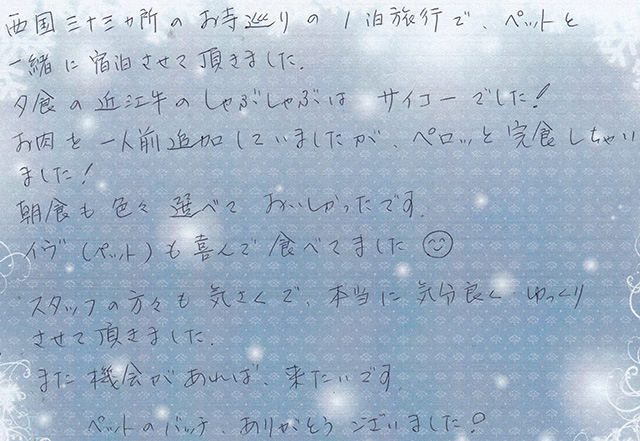 西国三十三ヵ所のお寺巡りの1泊旅行で、ペットと
一緒に宿泊させて頂きました.
夕食の近江牛のしゃぶしゃぶは サイコーでした!
お肉を一人前追加していましたが、ペロッと完食しちゃい
ました!
朝食も色々選べて おいしかったです.
イヴ(ペット)も喜んで食べてました☺
スタッフの方々も気さくで、本当に気分良く ゆっくり
させて頂きました.
また機会があれば、来たいです.
ペットのバッチ、ありがとうございました!